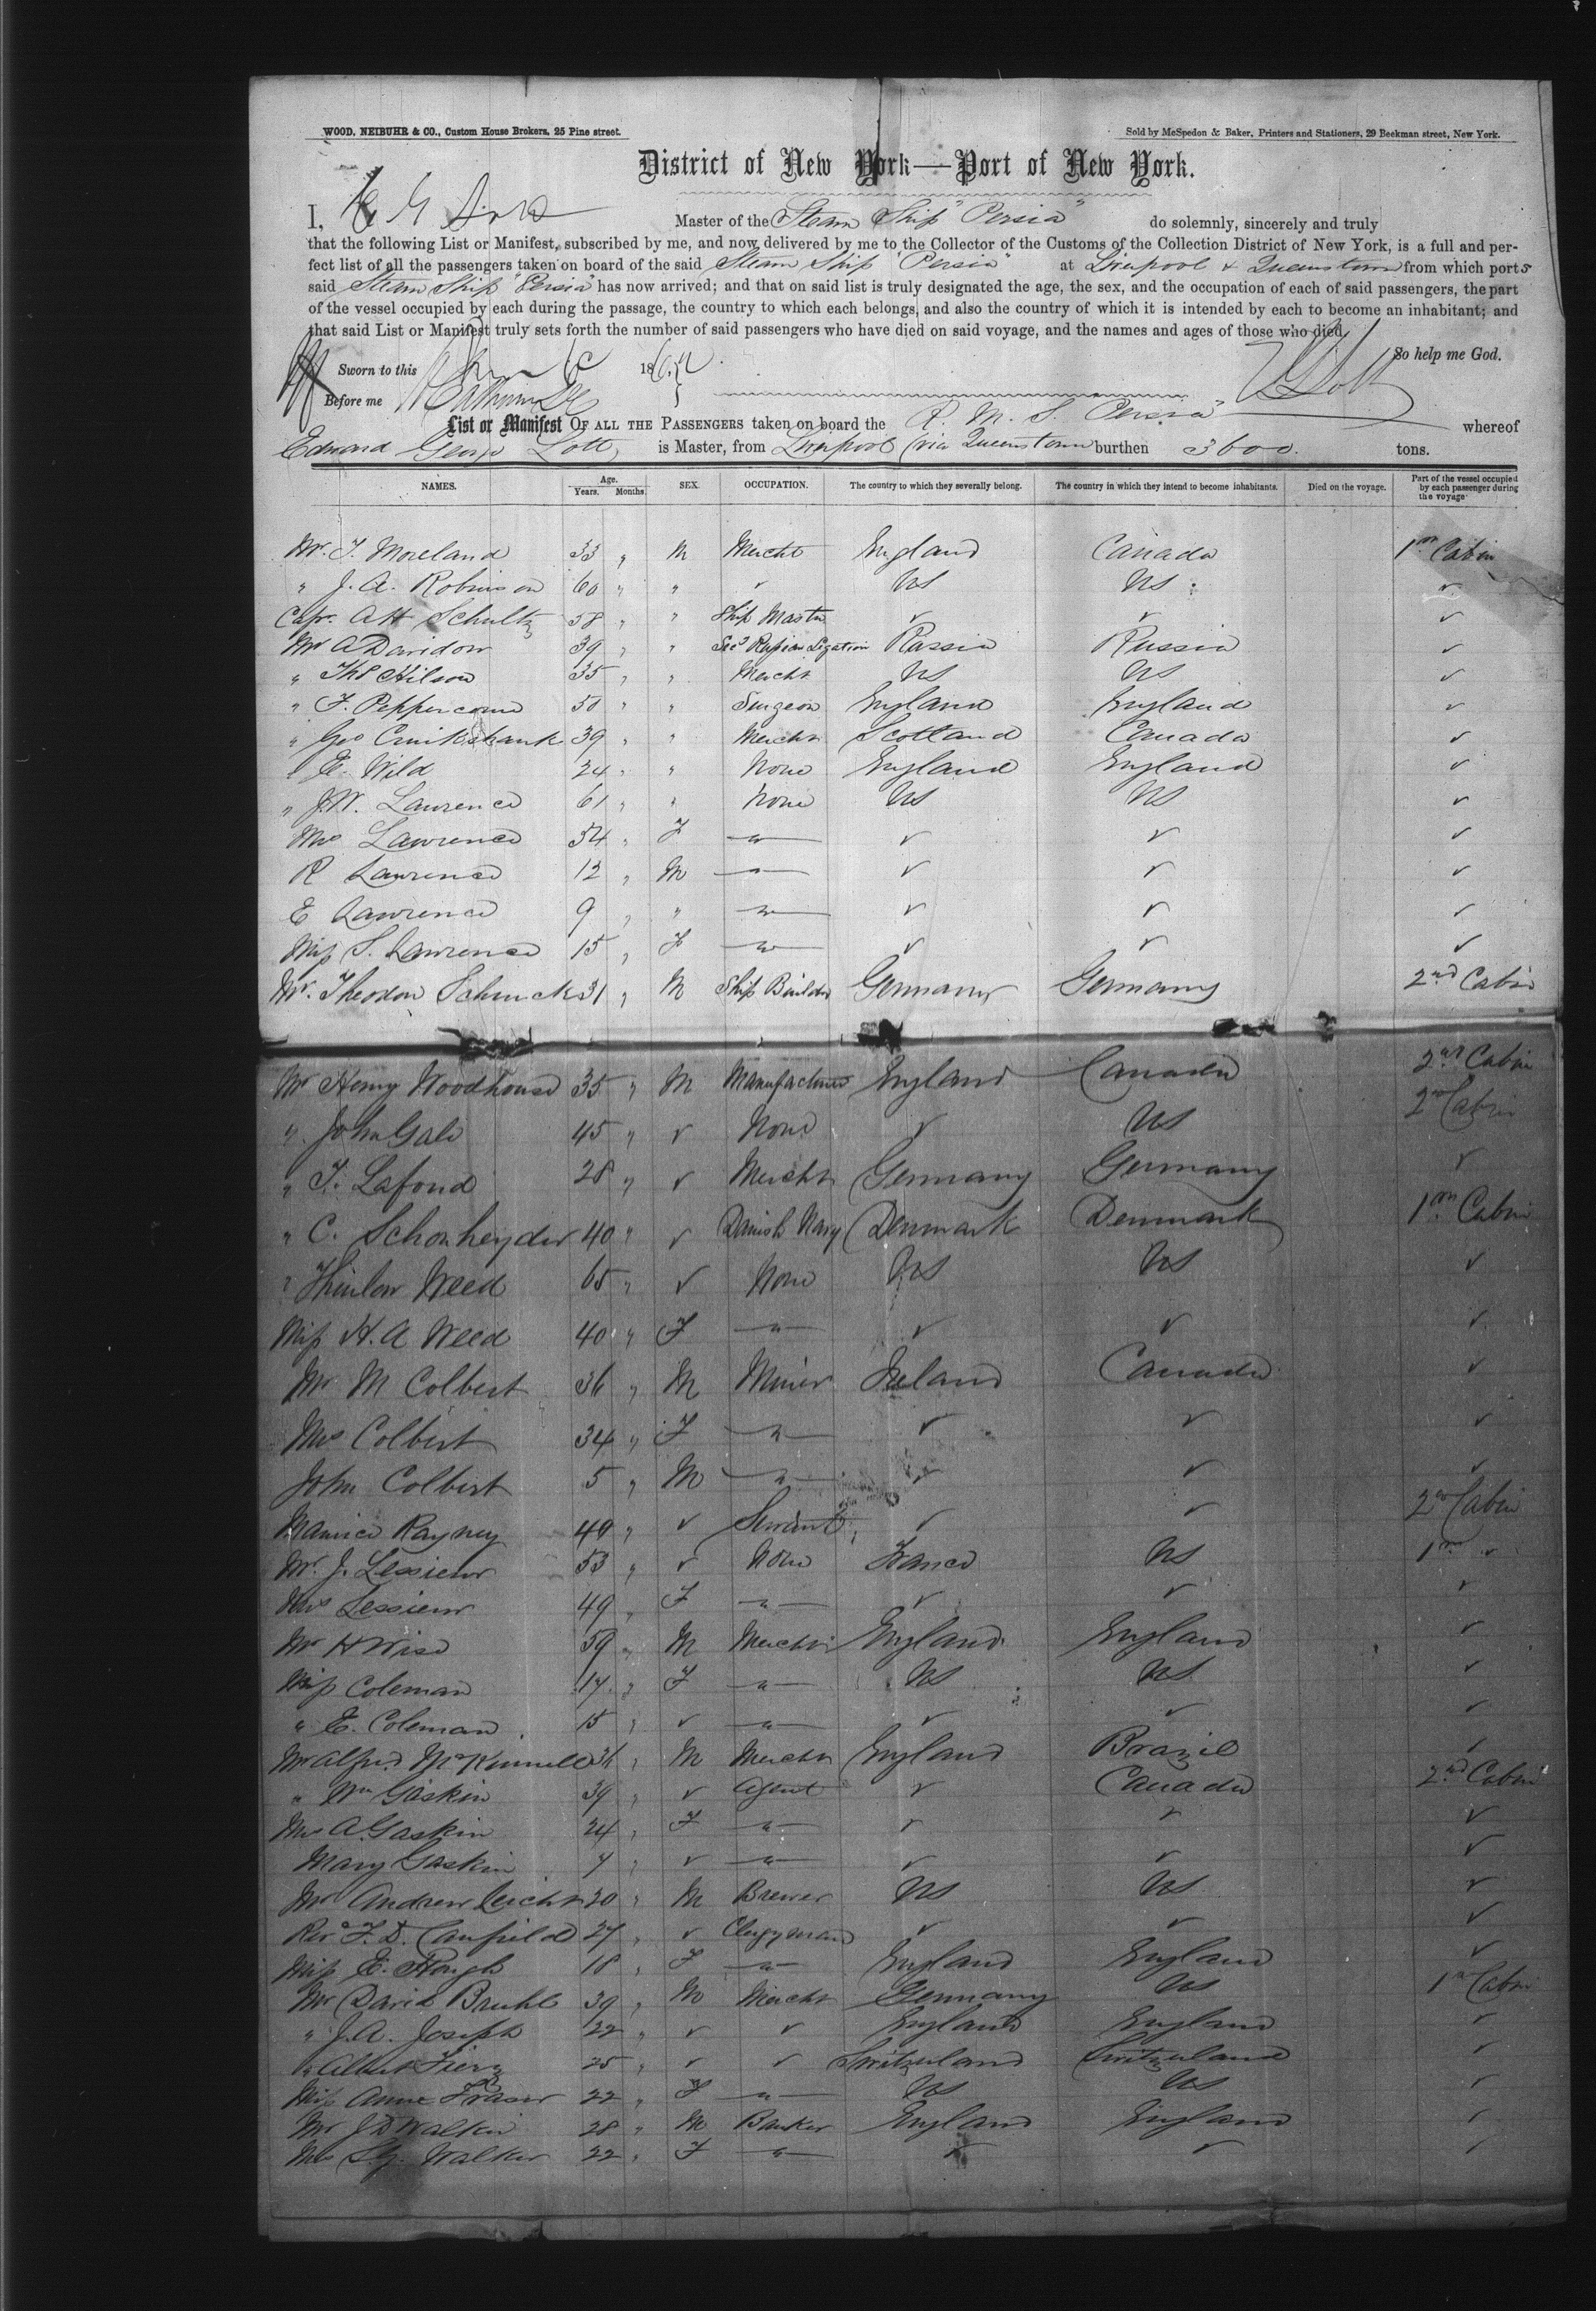 WOOD, NEIBUHR & CO., Custom House Brokers, 25 Pine street.
Sold by McSpedon & Baker, Printers and Stationers, 29 Beekman street, New York.
District of New York—Port of New York.
I, E G Lott Master of the Steam Ship "Persia" do solemnly, sincerely and truly
that the following List or Manifest, subscribed by me, and now delivered by me to the Collector of the Customs of the Collection District of New York, is a full and per-
fect list of all the passengers taken on board of the said Steam Ship "Persia" at Liverpool & Queenstown from which ports
said Steam Ship "Persia" has now arrived; and that on said list is truly designated the age, the sex, and the occupation of each of said passengers, the part
of the vessel occupied by each during the passage, the country to which each belongs, and also the country of which it is intended by each to become an inhabitant; and
that said List or Manifest truly sets forth the number of said passengers who have died on said voyage, and the names and ages of those who died.
So help me God.
Sworn to this 186
Before me
E G Lott
List or Manifest OF ALL THE PASSENGERS taken on board the R. M. S. Persia" whereof
Edward George Lott, is Master, from Liverpool (via Queenstown burthen 3600. tons.
NAMES. Age. Years. Months. SEX. OCCUPATION. The country to which they severally belong. The country in which they intend to become inhabitants. Died on the voyage. Part of the vessel occupied by each passenger during the voyage
Mr. T. Moreland 33 " M Mercht England Canada 1st Cabin
" J. A. Robinson 60 " " ✓ US US ✓
Capt. A H Schultz 58 " " Ship Master ✓ ✓ ✓
Mr A Davidow 39 " " Secy Russian Legation Russia Russia ✓
" Thos Hilson 35 " " Mercht US US ✓
" F. Peppercorne 50 " " Surgeon England England ✓
" Geo Cruikshank 39 " " Mercht Scotland Canada ✓
" E. Wild 24 " " None England England ✓
" J.W. Lawrence 61 " " None US US ✓
Mrs Lawrence 54 " F — " — ✓ ✓ ✓
R Lawrence 12 " M — " — ✓ ✓ ✓
E Lawrence 9 " " — " — ✓ ✓ ✓
Miss S. Lawrence 15 " F — " — ✓ ✓ ✓
Mr. Theodor Schunck 31 " M Ship Builder Germany Germany 2nd Cabin
Mr Henry Woodhouse 35 " M Manufacturer England Canada 2nd Cabin
" John Gale 45 " ✓ None ✓ US 2nd Cabin
" T. Lafond 28 " ✓ Mercht Germany Germany ✓
" C. Schonheyder 40 " ✓ Danish Navy Denmark Denmark 1st Cabin
" Thurlow Weed 65 " ✓ None US US ✓
Miss H. A Weed 40 " F — " — ✓ ✓ ✓
Mr M Colbert 36 " M Miner Ireland Canada ✓
Mrs Colbert 34 " F — " — ✓ ✓ ✓
John Colbert 5 " M — " — ✓ ✓ ✓
Maurice Rayney 40 " ✓ Servant ✓ ✓ 2nd Cabin
Mr. J. Lessieur 53 " ✓ None France US 1st ✓
Mrs Lessieur 49 " F — " — ✓ ✓ ✓
Mr H Wise 59 " M Mercht England England ✓
Miss Coleman 17 " F — " — US US ✓
" E. Coleman 15 " ✓ — " — ✓ ✓ ✓
Mr Alfred McKinnell 36 " M Mercht England Brazil ✓
" Wm Gaskin 39 " ✓ Agent ✓ Canada 2nd Cabin
Mrs A Gaskin 24 " F — " — ✓ ✓ ✓
Mary Gaskin 4 " ✓ — " — ✓ ✓ ✓
Mr Andrew Leicht 30 " M Brewer US US ✓
Rev. F. D. Canfield 27 " ✓ Clergyman ✓ ✓ ✓
Miss E. Hough 18 " F — " — England England ✓
Mr David Bruhl 39 " M Mercht Germany US 1st Cabin
" J. A. Joseph 22 " ✓ ✓ England England ✓
" Albert Fierz 25 " ✓ ✓ Switzerland Switzerland ✓
Miss Anne Fraser 22 " F — " — US US ✓
Mr J D Walker 28 " M Banker England England ✓
Mrs Walker 22 " F — " — ✓ ✓ ✓